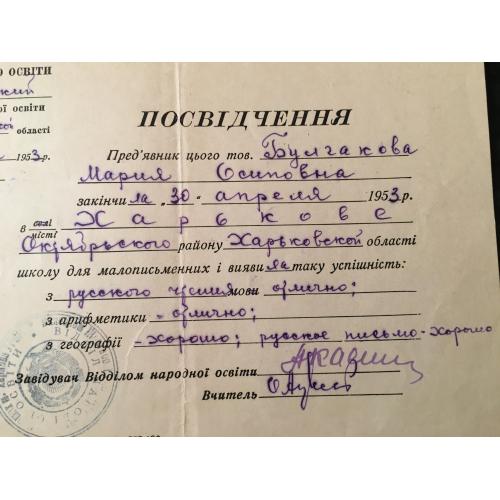 О ОСВІТИ
ої освіти
кой області
1953 р.
ПОСВІДЧЕННЯ
Пред'явник цього тов. Булгакова
Мария Осиповна
закінчила „30" апреля 1953 р.
в селі місті Харькове
Октябрьского району Харьковской області
школу для малописьменних і виявила таку успішність:
з русского чтения мови отлично;
з арифметики - отлично;
з географії - хорошо; русское письмо - хорошо
Завідувач Відділом народної освіти
Вчитель